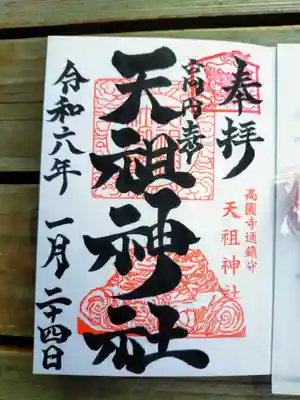 奉拝
高圓寺通鎮守
天祖神社
天祖神社
令和六年 一月二十四日